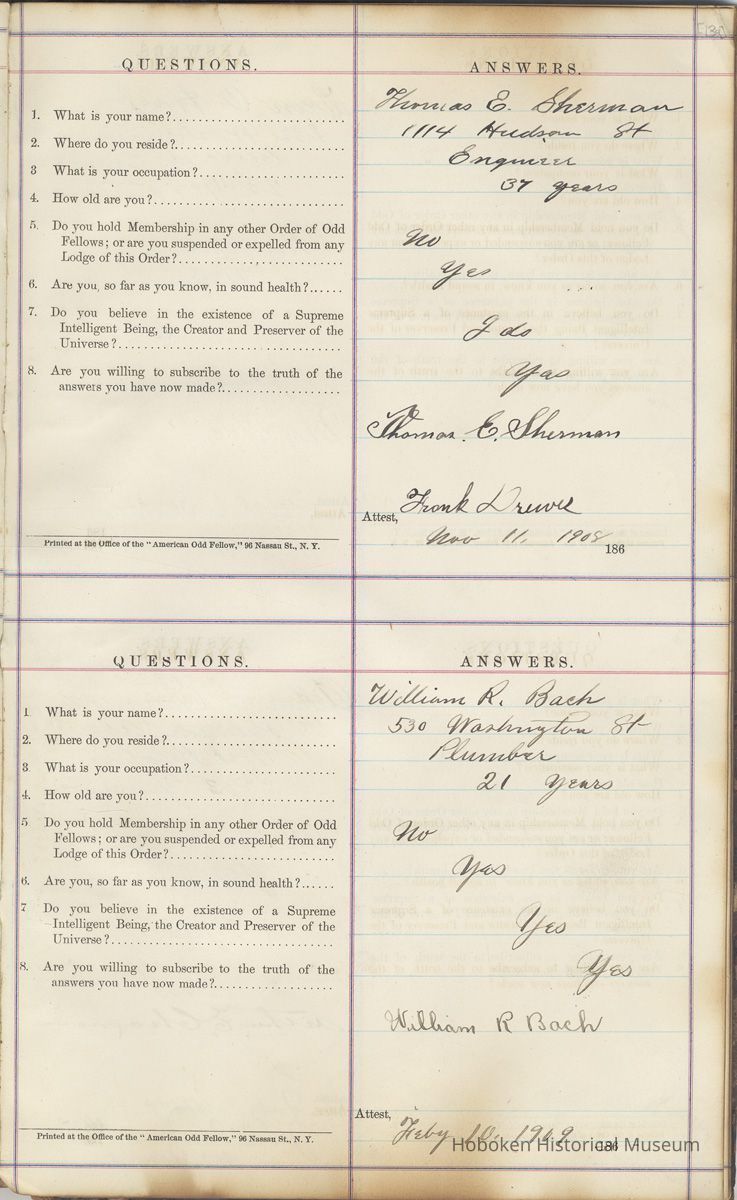 QUESTIONS.
ANSWERS.
1. What is your name?
Thomas E. Sherman
2. Where do you reside?
1114 Hudson St
3 What is your occupation?
Engineer
4. How old are you?
37 years
5. Do you hold Membership in any other Order of Odd
Fellows; or are you suspended or expelled from any
Lodge of this Order?
No
6. Are you, so far as you know, in sound health?
Yes
7. Do you believe in the existence of a Supreme
Intelligent Being, the Creator and Preserver of the
Universe?
I do
8. Are you willing to subscribe to the truth of the
answers you have now made?
Yas
Thomas. E. Sherman
Attest, Frank Drewes
Nov 11, 1908 186
Printed at the Office of the "American Odd Fellow," 96 Nassau St., N. Y.
QUESTIONS.
ANSWERS.
1 What is your name?
William R. Bach
2. Where do you reside?
530 Washington St
3 What is your occupation?
Plumber
4. How old are you?
21 years
5. Do you hold Membership in any other Order of Odd
Fellows; or are you suspended or expelled from any
Lodge of this Order?
No
6. Are you, so far as you know, in sound health?
Yas
7 Do you believe in the existence of a Supreme
Intelligent Being, the Creator and Preserver of the
Universe?
Yes
8. Are you willing to subscribe to the truth of the
answers you have now made?
Yes
William R Bach
Attest,
Feby 10, 1909 186
Printed at the Office of the "American Odd Fellow," 96 Nassau St., N. Y.
Hoboken Historical Museum